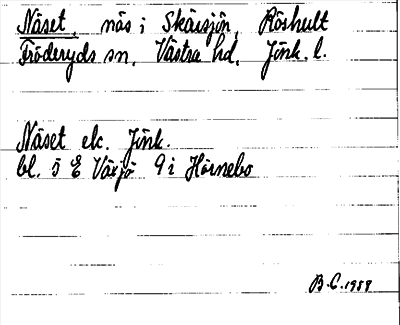 Näset, näs i Skärsjön, Röshult
Fröderyds sn, Västra hd, Jönk. l.
Näset ek. Jönk.
bl. 5 E Växjö 9 i Hörnebo
B.C. 1958